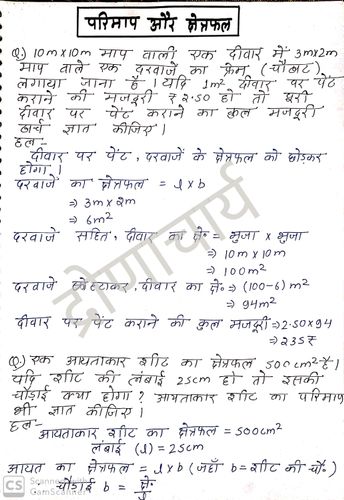 परिमाप और क्षेत्रफल
Q.) 10m x 10m माप वाली एक दीवार में 3m x 2m
माप वाले एक दरवाजे का फ्रेम (चौखट)
लगाया जाना है। यदि 1m² दीवार पर पेंट
कराने की मजदूरी ₹ 2.50 हो तो पूरी
दीवार पर पेंट कराने का कुल मजदूरी
खर्च ज्ञात कीजिए।
हल-
दीवार पर पेंट, दरवाजे के क्षेत्रफल को छोड़कर
होगा।
दरवाजे का क्षेत्रफल = l x b
⇒ 3m x 2m
⇒ 6m²
दरवाजे सहित, दीवार का क्षे॰ = भुजा x भुजा
⇒ 10m x 10m
⇒ 100m²
दरवाजे हटाकर, दीवार का क्षे॰ ⇒ (100-6) m²
⇒ 94m²
दीवार पर पेंट कराने की कुल मजदूरी ⇒ 2.50 x 94
⇒ 235₹
Q.) एक आयताकार शीट का क्षेत्रफल 500cm² है।
यदि शीट की लंबाई 25cm हो तो इसकी
चौड़ाई क्या होगा? आयताकार शीट का परिमाप
भी ज्ञात कीजिए।
हल-
आयताकार शीट का क्षेत्रफल = 500cm²
लंबाई (l) = 25cm
आयत का क्षेत्रफल = l x b (जहाँ b = शीट की चौ॰)
चौड़ाई b = क्षे॰/l
द्रोणाचार्य
CS Scanned with
CamScanner